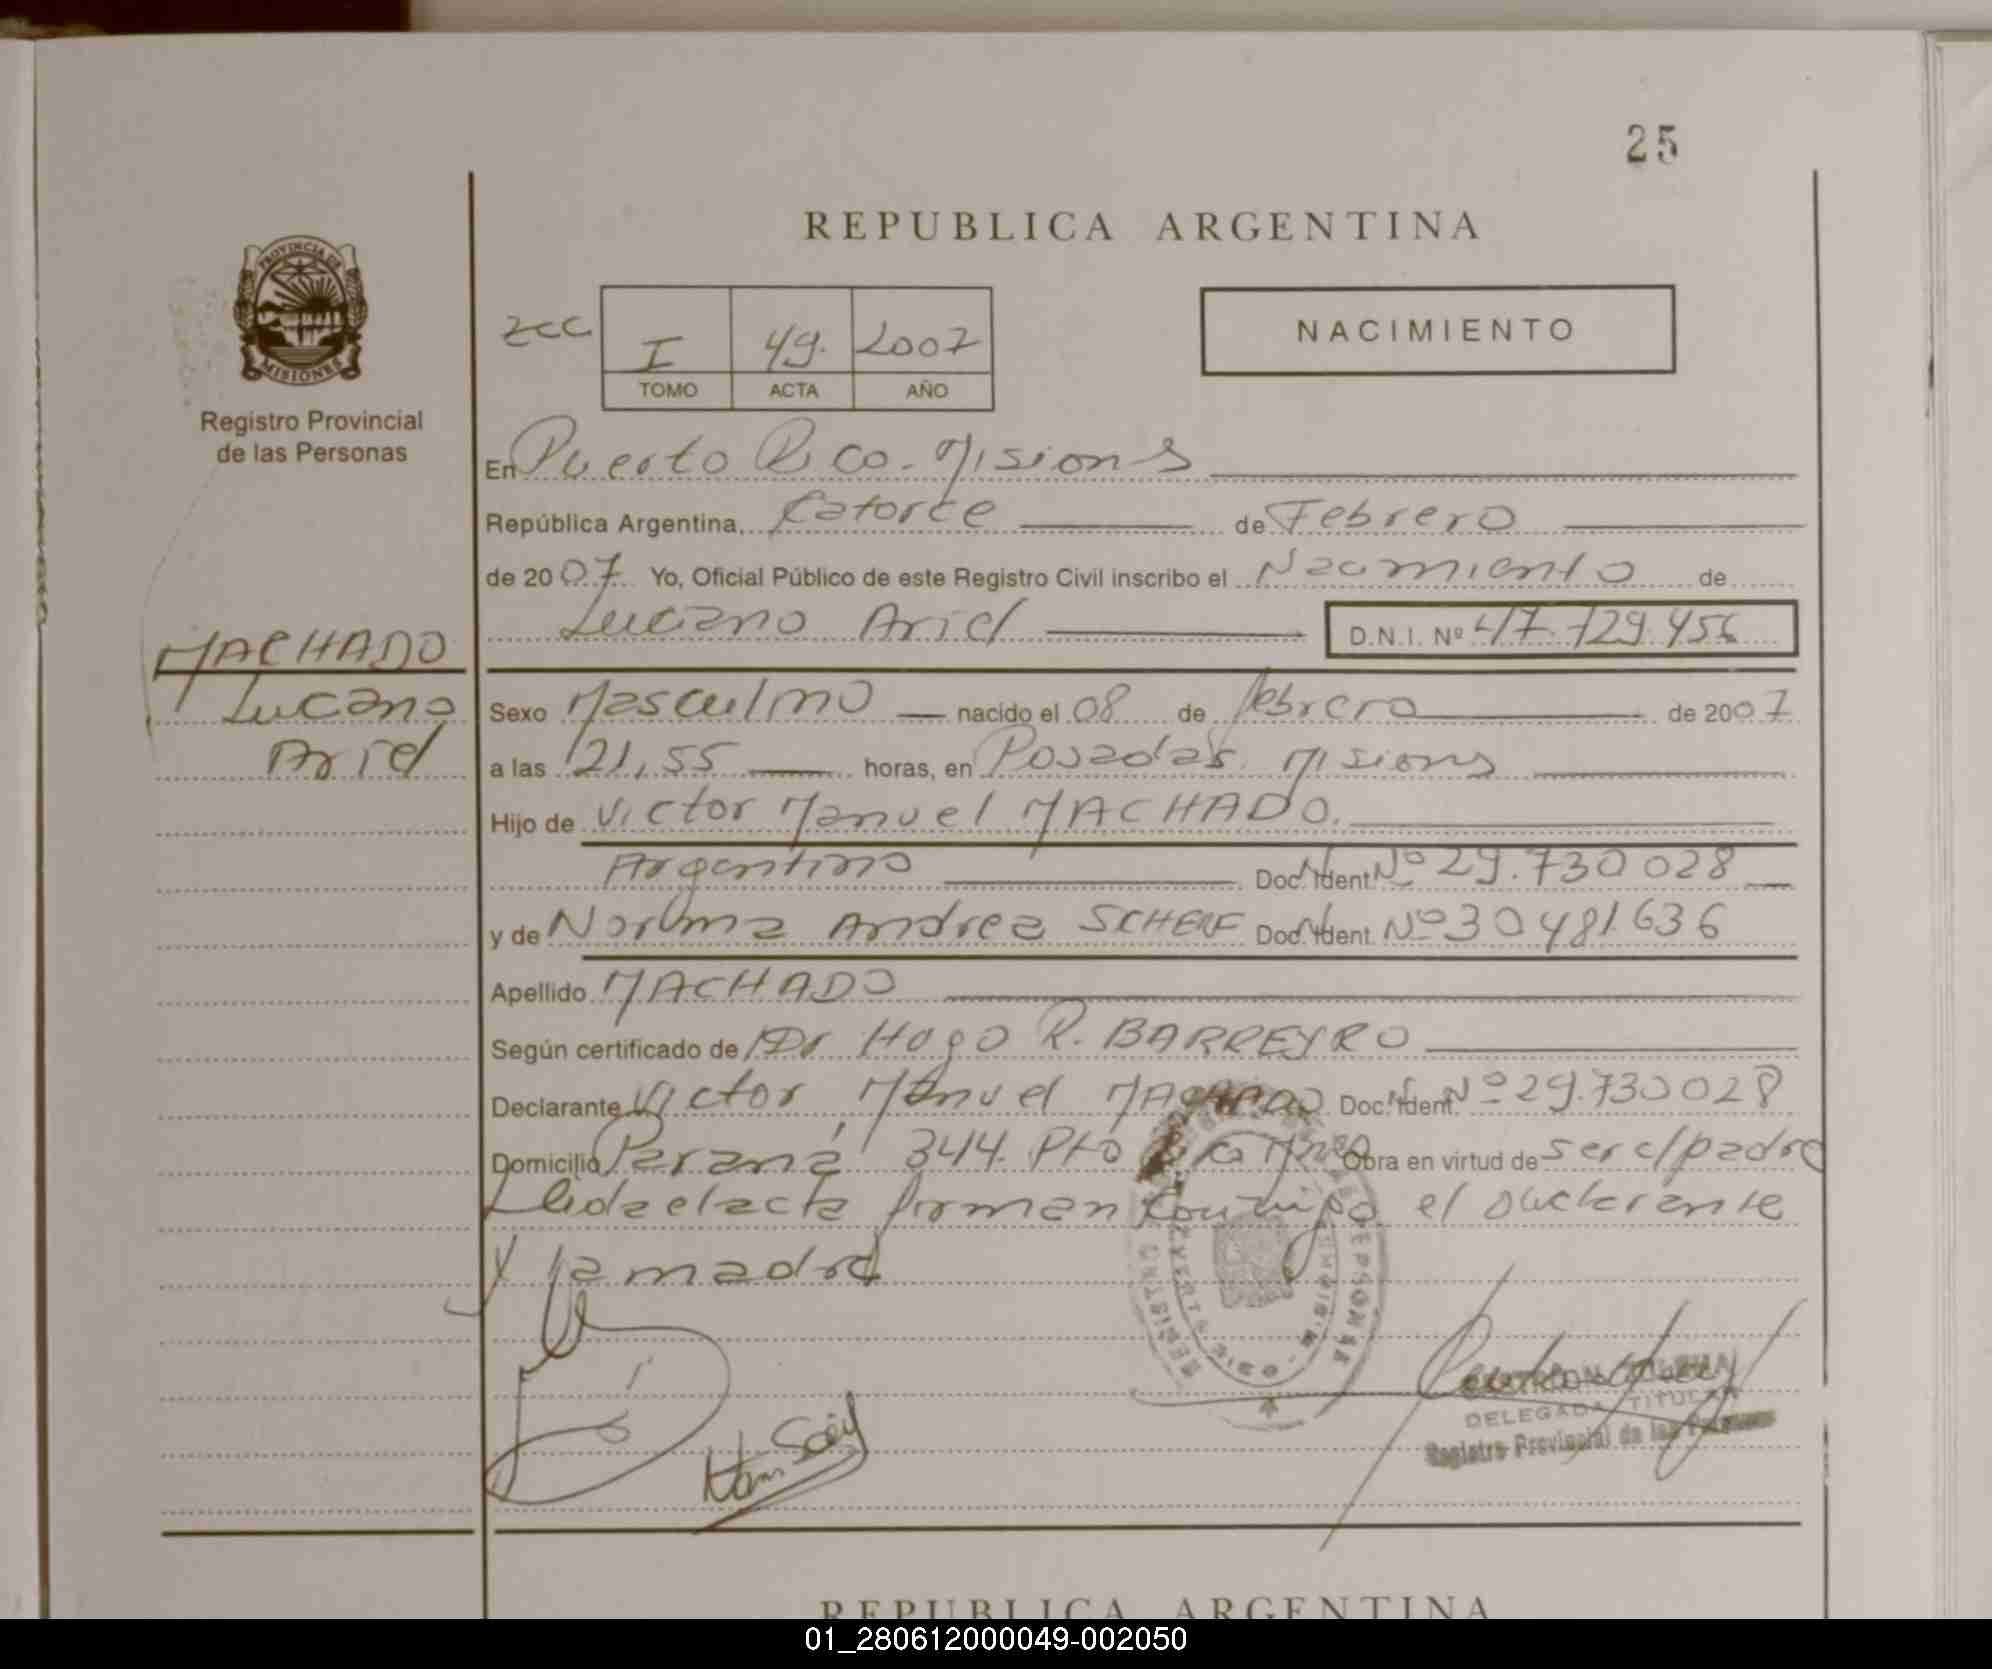 25
REPUBLICA ARGENTINA
PROVINCIA DE
MISIONES
Registro Provincial
de las Personas
I 49. 2007
TOMO ACTA AÑO
NACIMIENTO
En Puerto Rico. Misions
República Argentina, Catorce de Febrero
de 2007 Yo, Oficial Público de este Registro Civil inscribo el Nacimiento de
Luciano Ariel D.N.I. Nº 47.729.456
MACHADO
Luciano
Ariel
Sexo Masculino nacido el 08 de febrero de 2007
a las 21,55 horas, en Posadas. Misions
Hijo de Victor Manuel MACHADO.
Argentino Doc. Ident. Nº 29.730028
y de Norma Andrea SCHERF Doc. Ident. Nº 30481636
Apellido MACHADO
Según certificado de Dr Hugo R. BARREYRO
Declarante Victor Manuel MACHADO Doc. Ident. Nº 29.730028
Domicilio Paraná 344. Pto Rico Mnes Obra en virtud de ser el padre
Leida el acta firman conmigo el declarante
y la madre
DELEGADA TITULAR
Registro Provincial de las Personas
REPUBLICA ARGENTINA
01_280612000049-002050